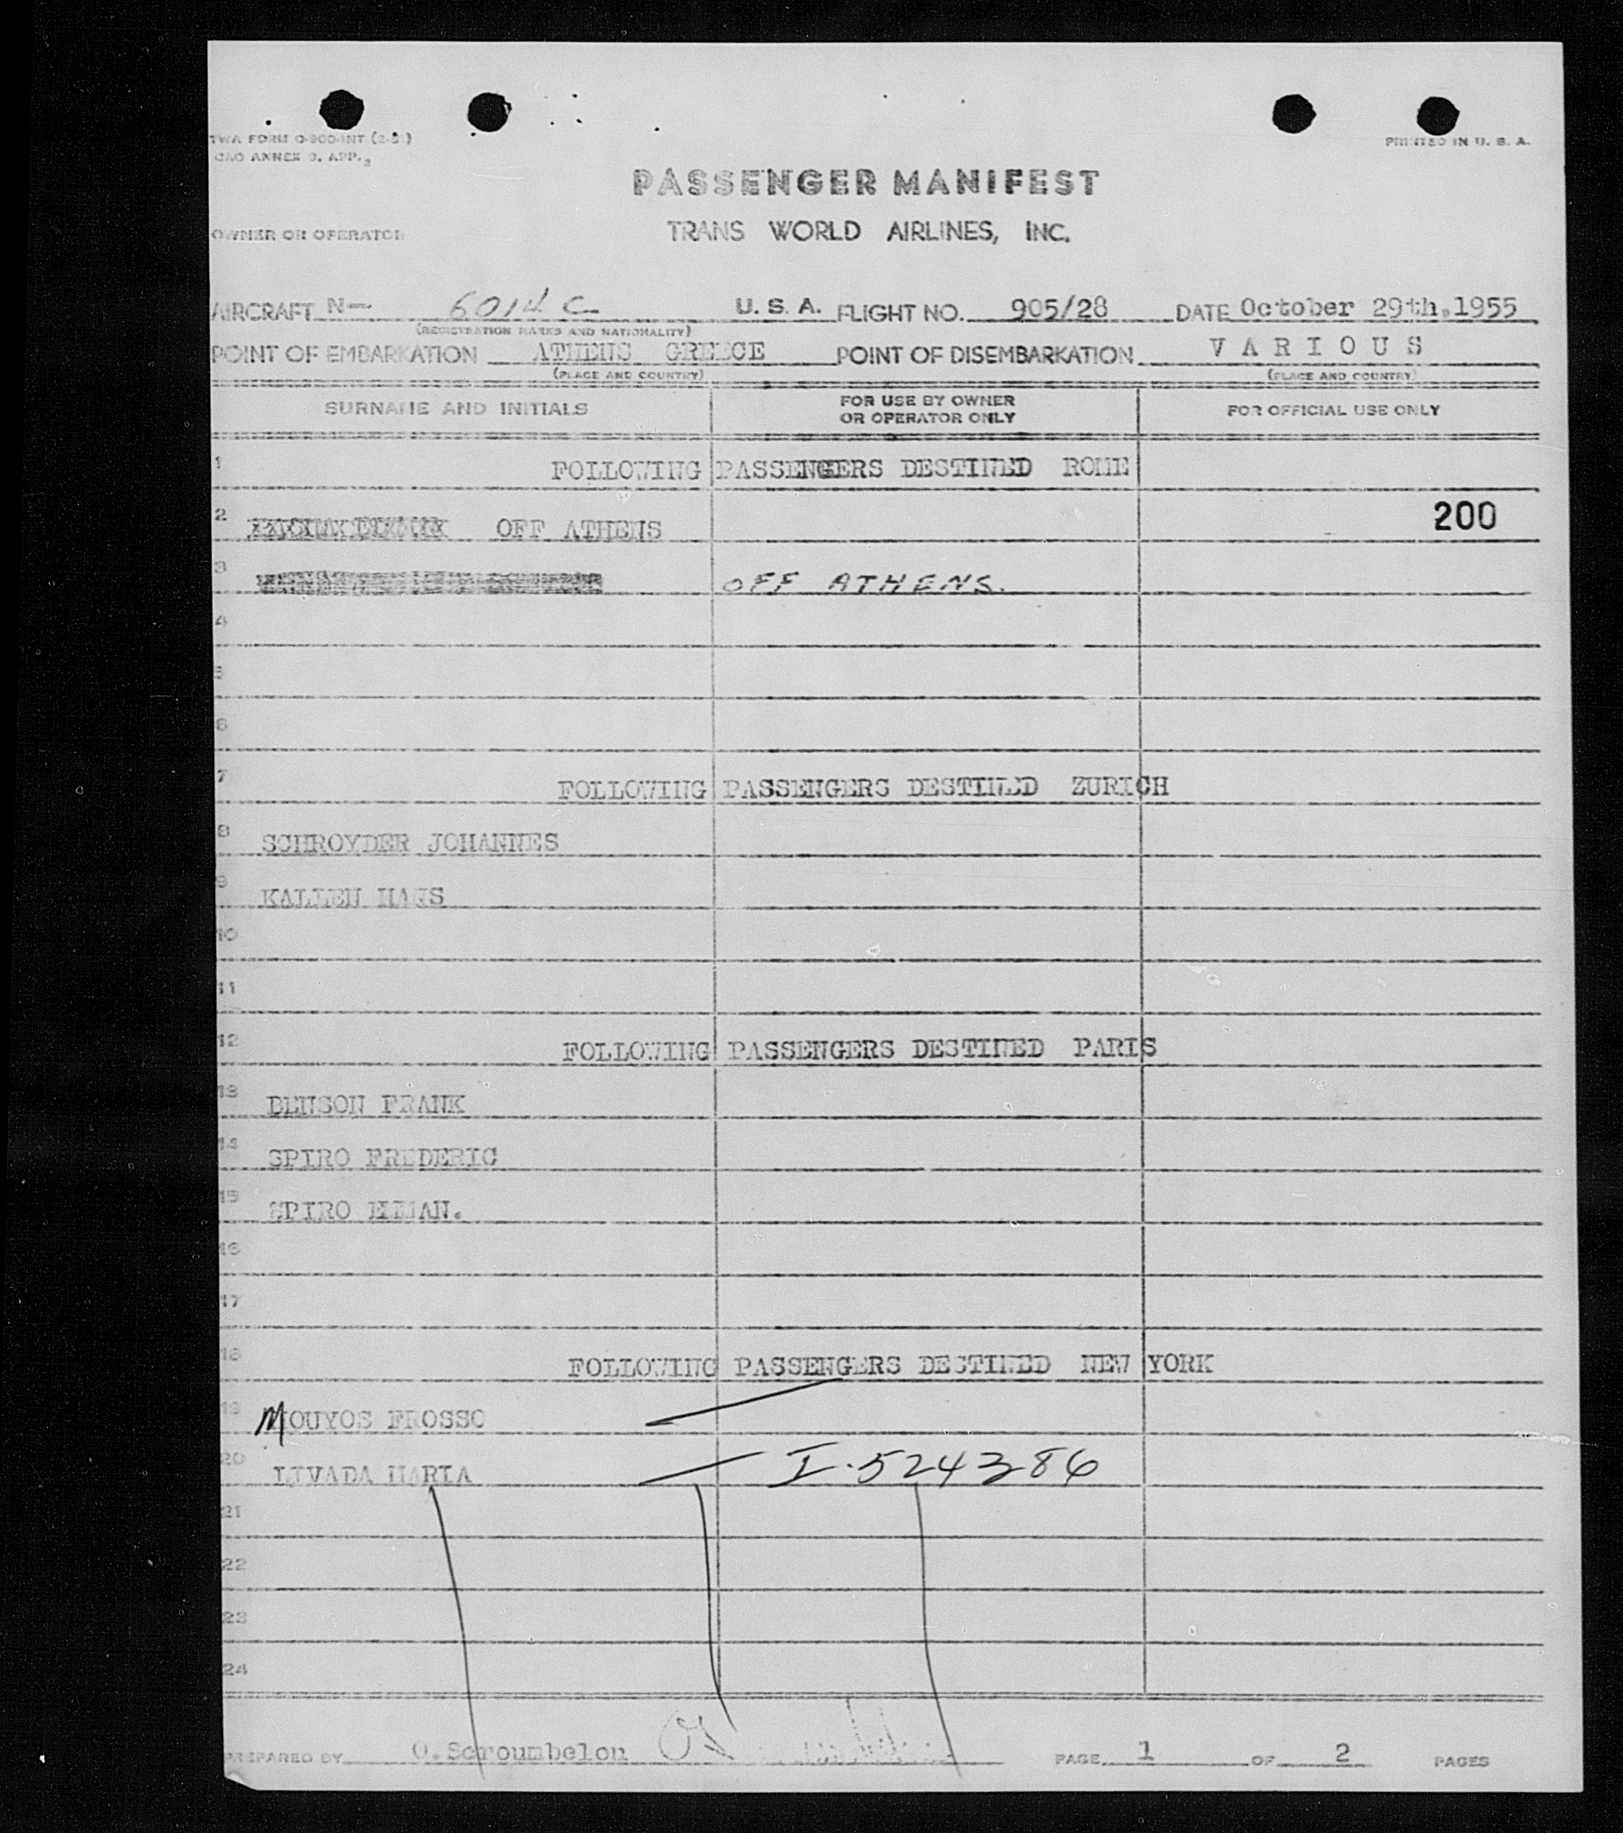 TWA FORM O-900-INT (2-51)
PRINTED IN U. S. A.
ICAO ANNEX 9, APP. 3
PASSENGER MANIFEST
OWNER OR OPERATOR
TRANS WORLD AIRLINES, INC.
AIRCRAFT N— 6014 C U. S. A. FLIGHT NO. 905/28 DATE October 29th,1955
(REGISTRATION MARKS AND NATIONALITY)
POINT OF EMBARKATION ATHENS GREECE POINT OF DISEMBARKATION V A R I O U S
(PLACE AND COUNTRY) (PLACE AND COUNTRY)
SURNAME AND INITIALS FOR USE BY OWNER OR OPERATOR ONLY FOR OFFICIAL USE ONLY
1 FOLLOWING PASSENGERS DESTINED ROME
2 OFF ATHENS 200
3 OFF ATHENS.
4
5
6
7 FOLLOWING PASSENGERS DESTINED ZURICH
8 SCHROYDER JOHANNES
9 KALLEN HANS
10
11
12 FOLLOWING PASSENGERS DESTINED PARIS
13 BENSON FRANK
14 SPIRO FREDERIC
15 SPIRO
16
17
18 FOLLOWING PASSENGERS DESTINED NEW YORK
19 MOUYOS FROSSO
20 LIVADA MARIA I-524386
21
22
23
24
PREPARED BY O.Scroumbelou PAGE 1 OF 2 PAGES